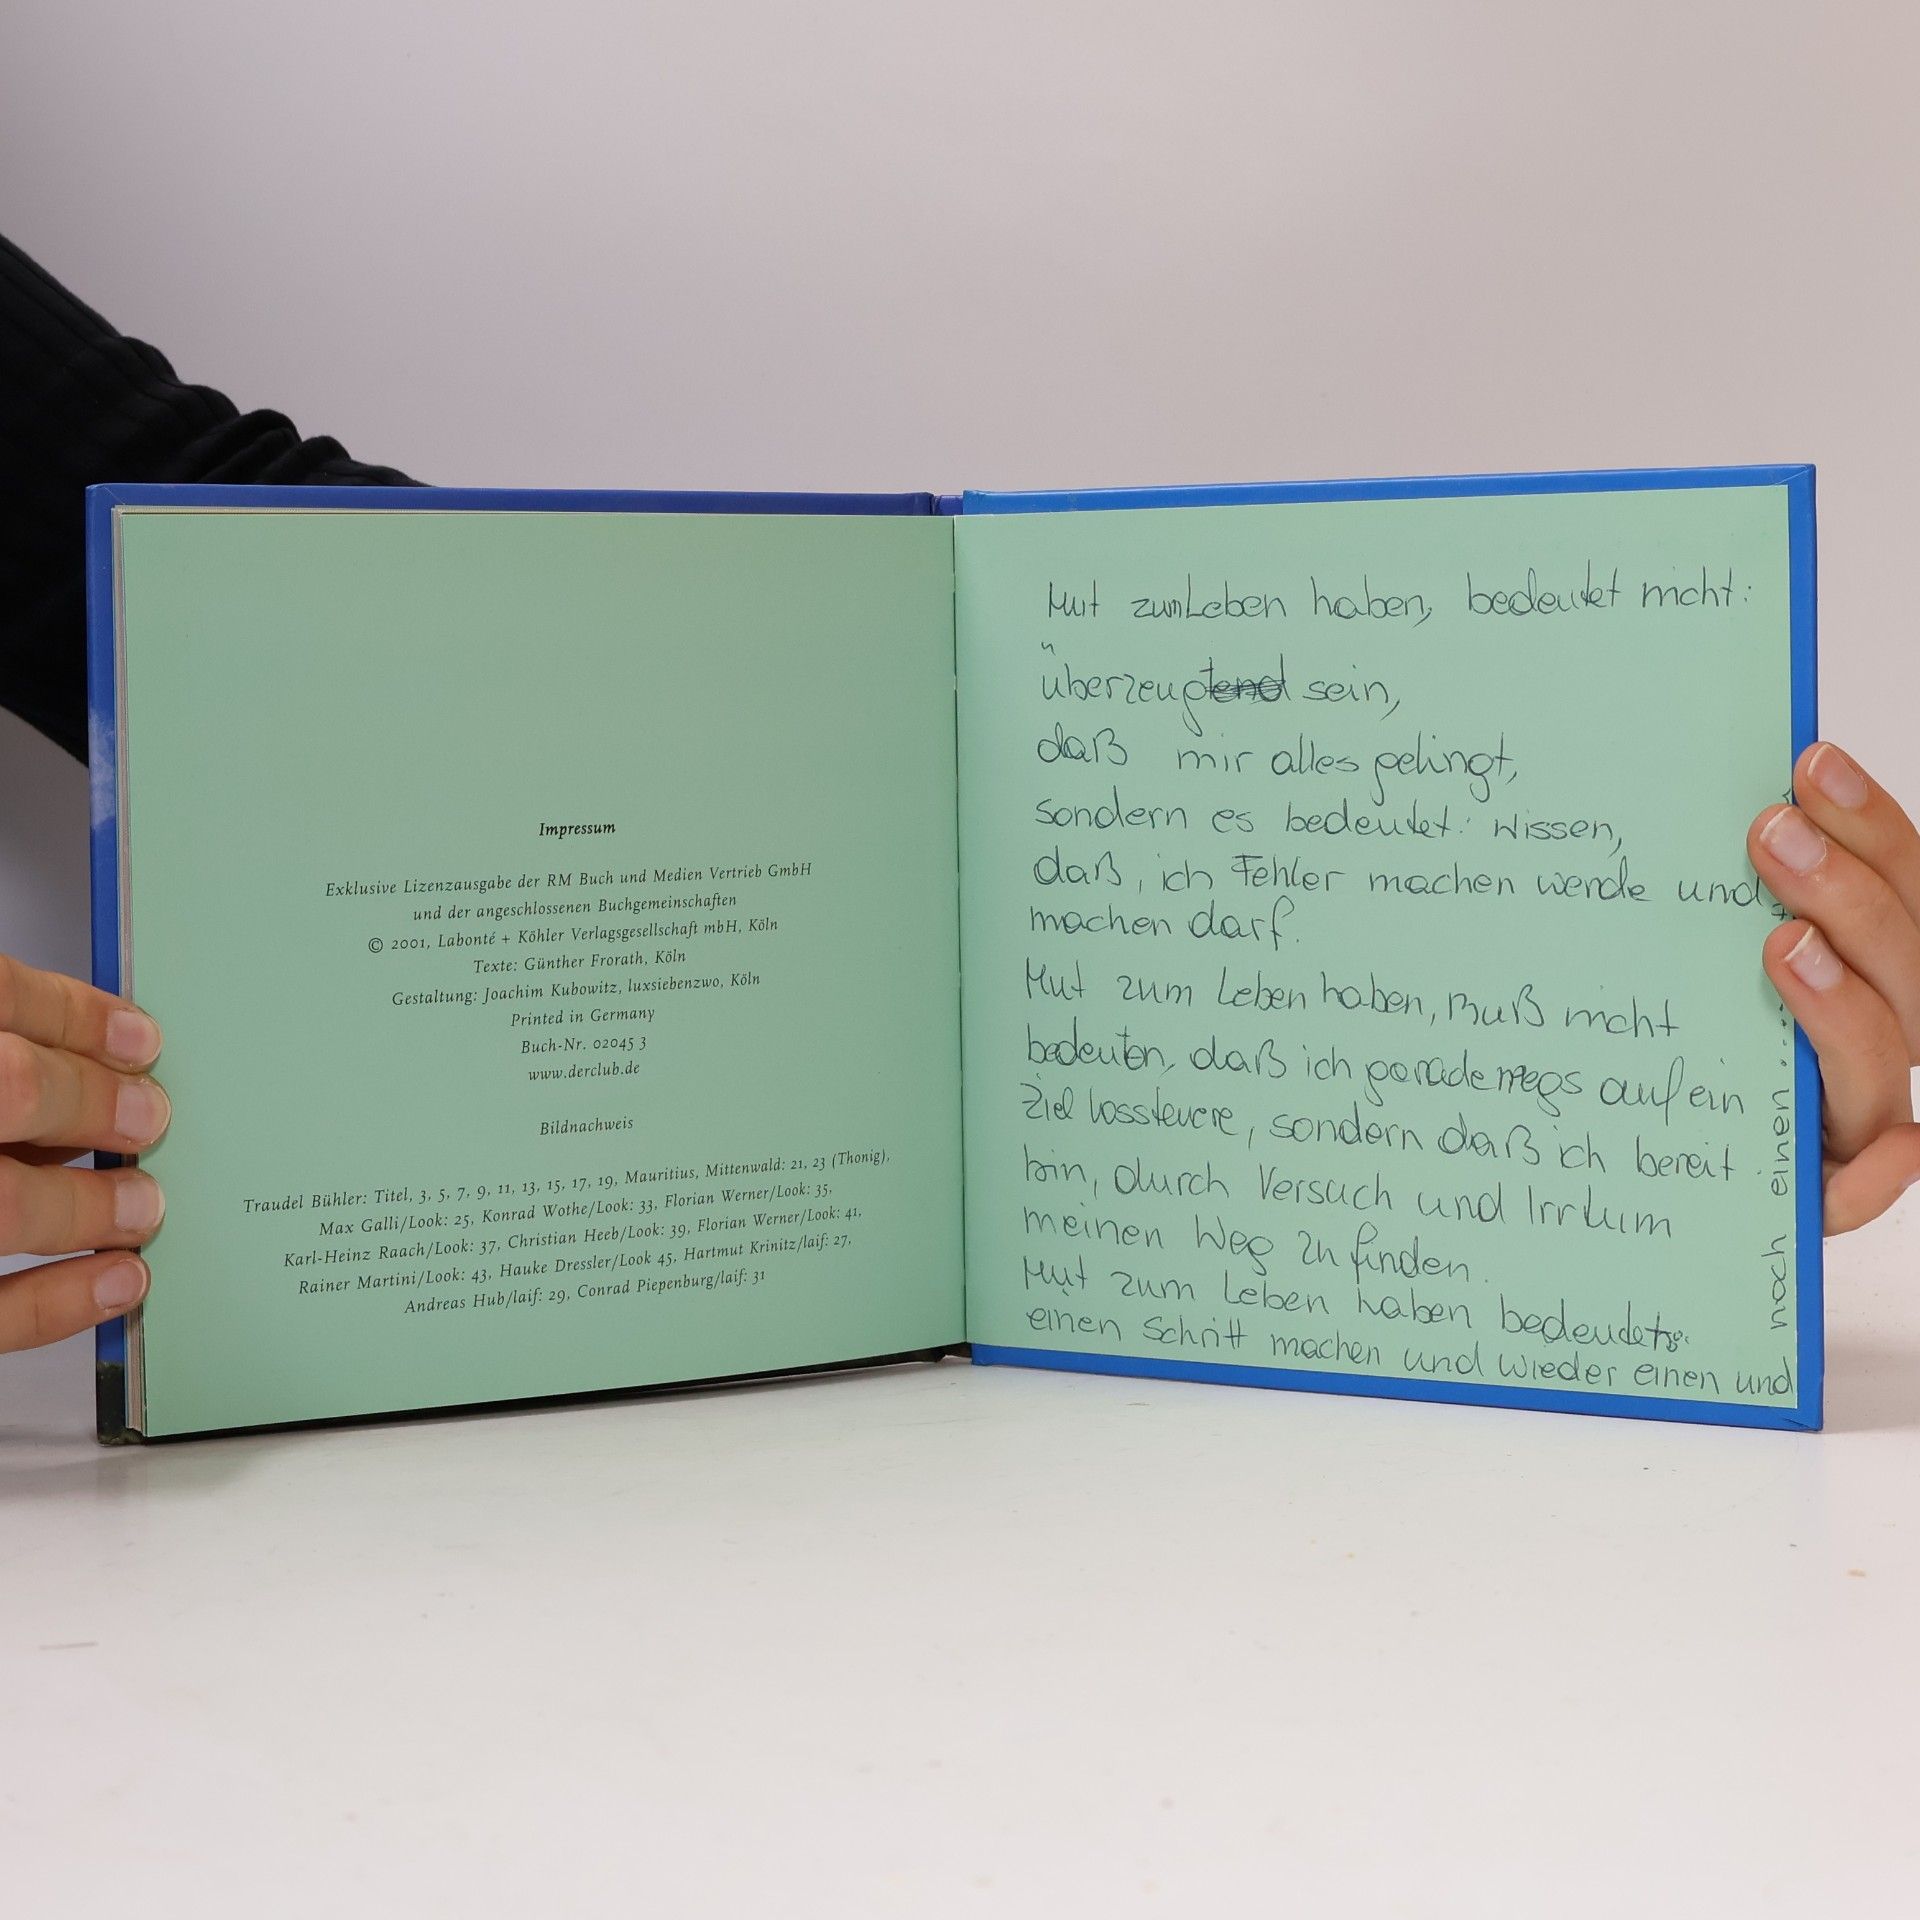 Impressum
Exklusive Lizenzausgabe der RM Buch und Medien Vertrieb GmbH
und der angeschlossenen Buchgemeinschaften
© 2001, Labonté + Köhler Verlagsgesellschaft mbH, Köln
Texte: Günther Frorath, Köln
Gestaltung: Joachim Kubowitz, luxsiebenzwo, Köln
Printed in Germany
Buch-Nr. 02045 3
www.derclub.de
Bildnachweis
Traudel Bühler: Titel, 3, 5, 7, 9, 11, 13, 15, 17, 19, Mauritius, Mittenwald: 21, 23 (Thonig),
Max Galli/Look: 25, Konrad Wothe/Look: 33, Florian Werner/Look: 35,
Karl-Heinz Raach/Look: 37, Christian Heeb/Look: 39, Florian Werner/Look: 41,
Rainer Martini/Look: 43, Hauke Dressler/Look 45, Hartmut Krinitz/laif: 27,
Andreas Hub/laif: 29, Conrad Piepenburg/laif: 31
Mut zum Leben haben, bedeutet nicht:
überzeugt sein,
daß mir alles gelingt,
sondern es bedeutet: wissen,
daß, ich Fehler machen werde und
machen darf.
Mut zum Leben haben, muß nicht
bedeuten, daß ich geradewegs auf ein
Ziel lossteuere, sondern daß ich bereit
bin, durch Versuch und Irrtum
meinen Weg zu finden.
Mut zum Leben haben bedeudet:
einen Schritt machen und wieder einen und
noch einen.....